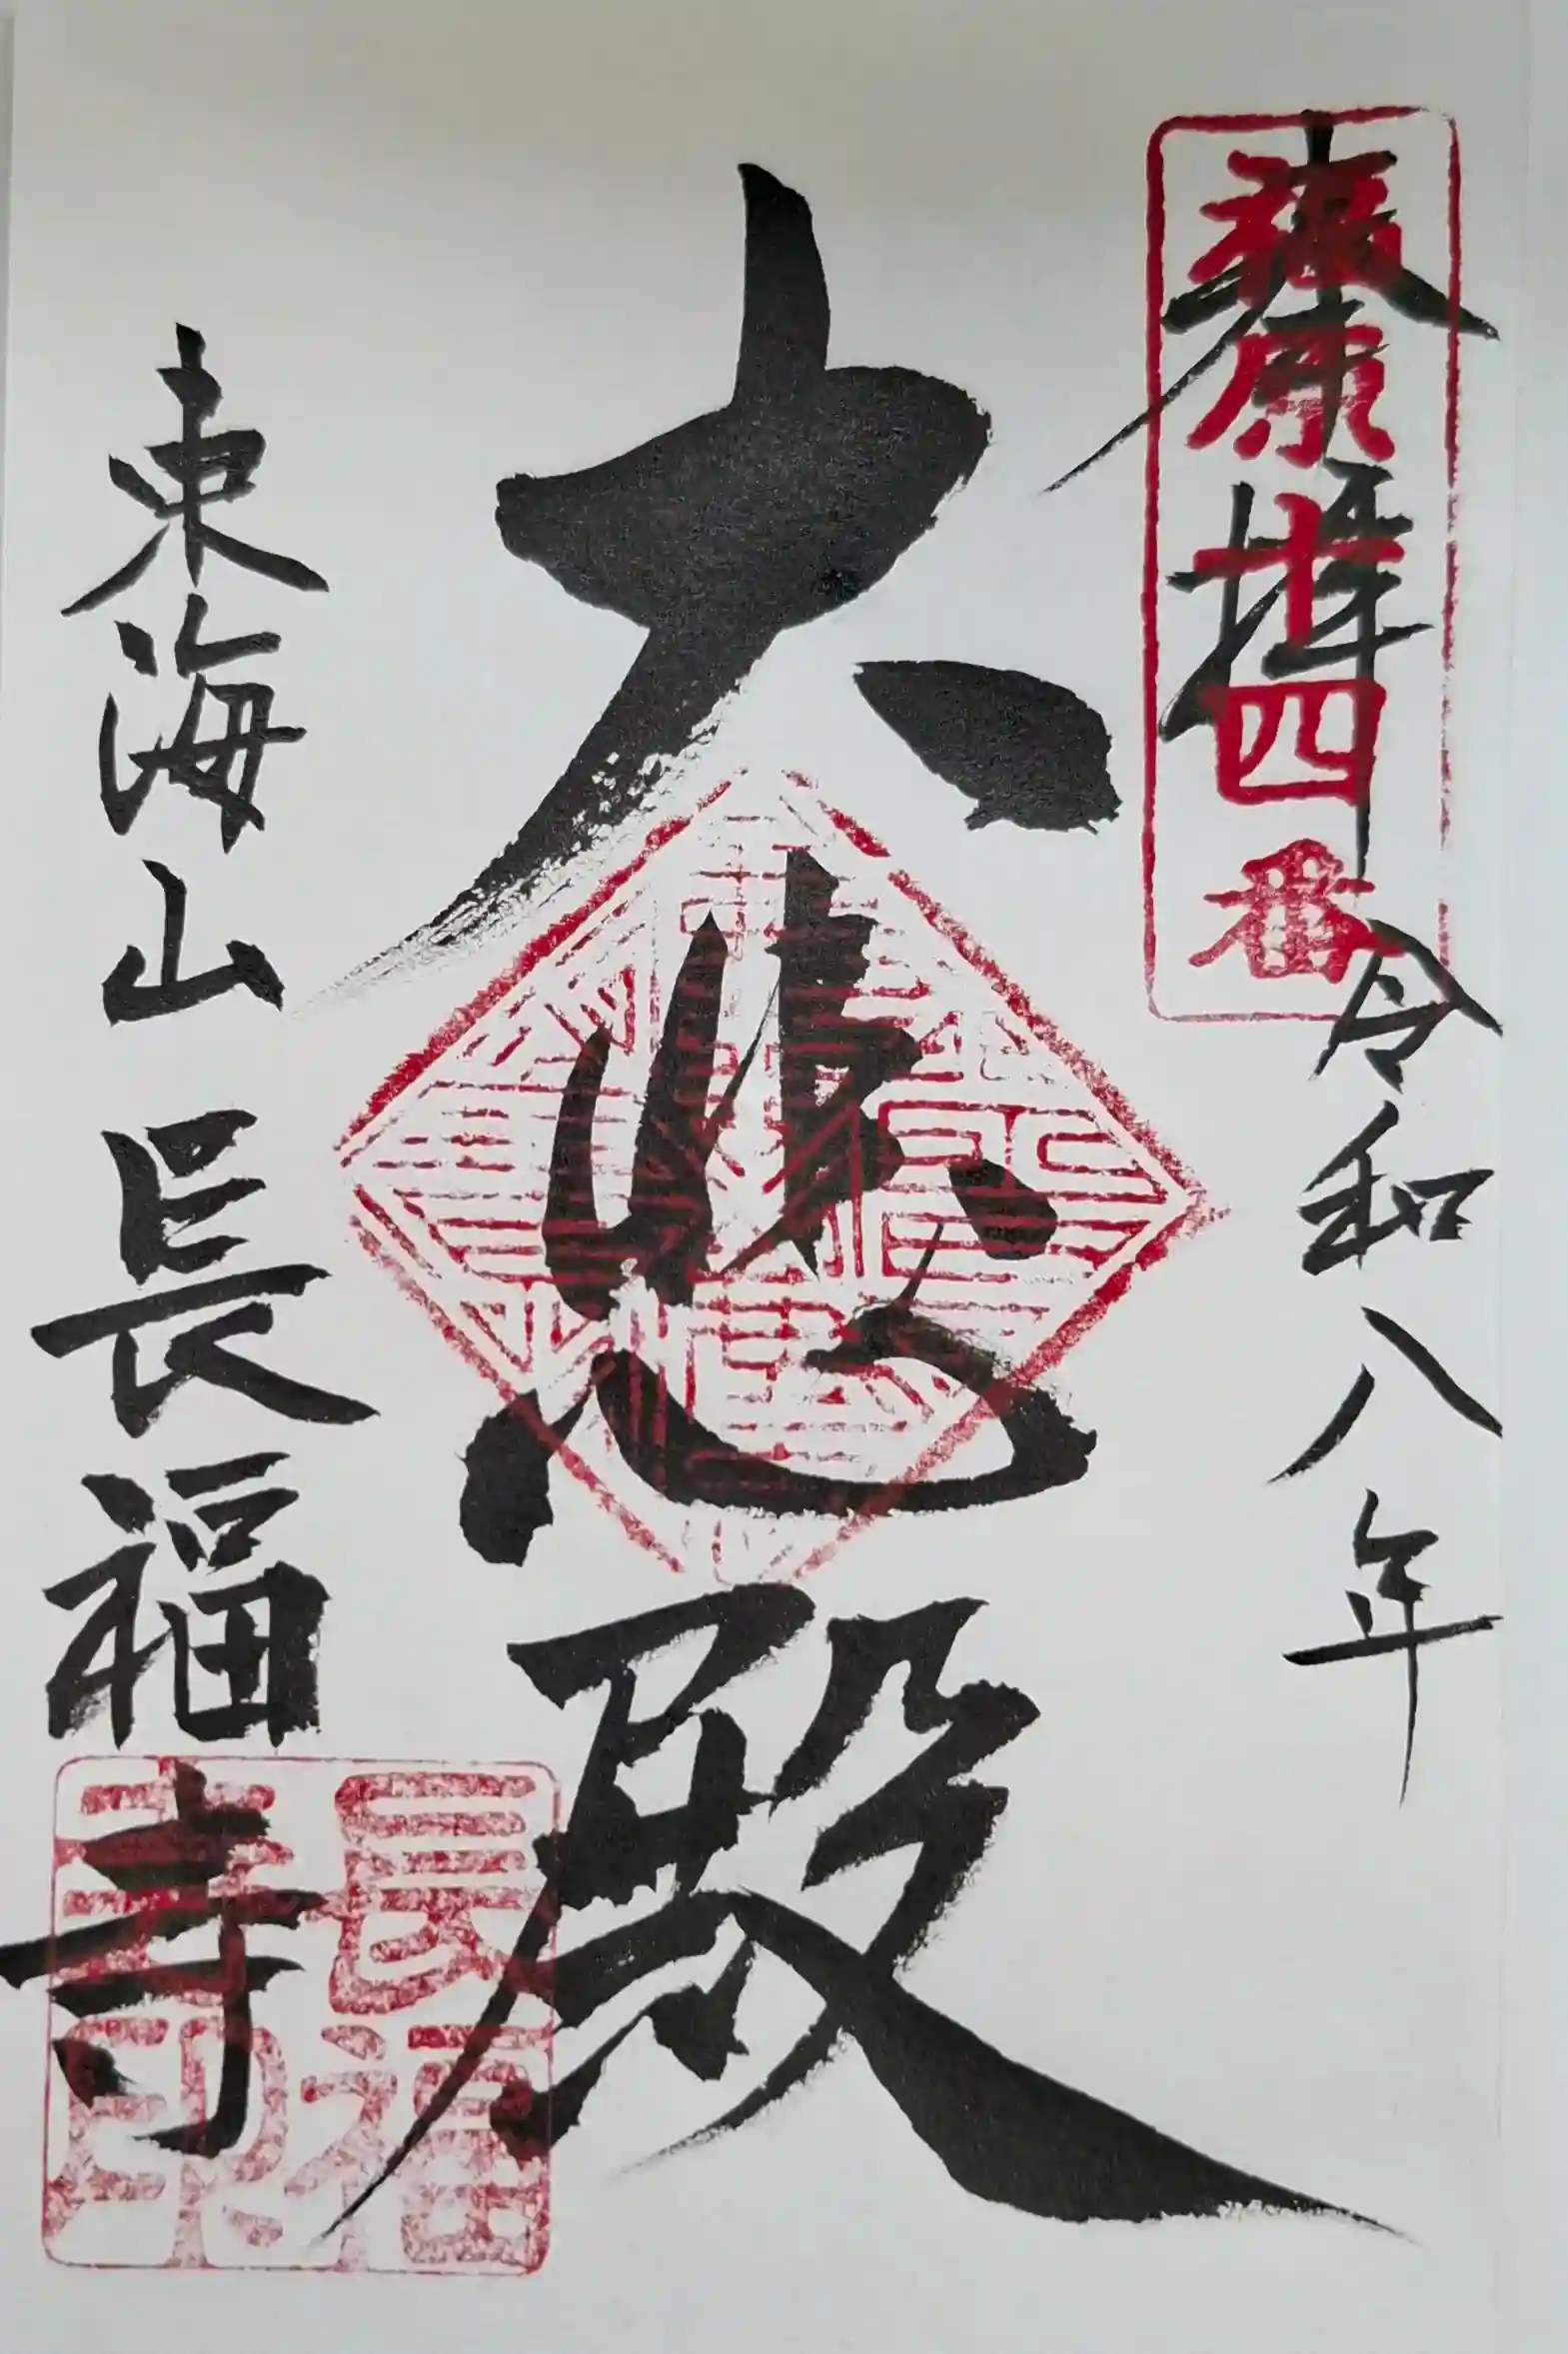 奉拝
榛原十四番
令和八年
大悲殿
東海山長福寺
長福寺印